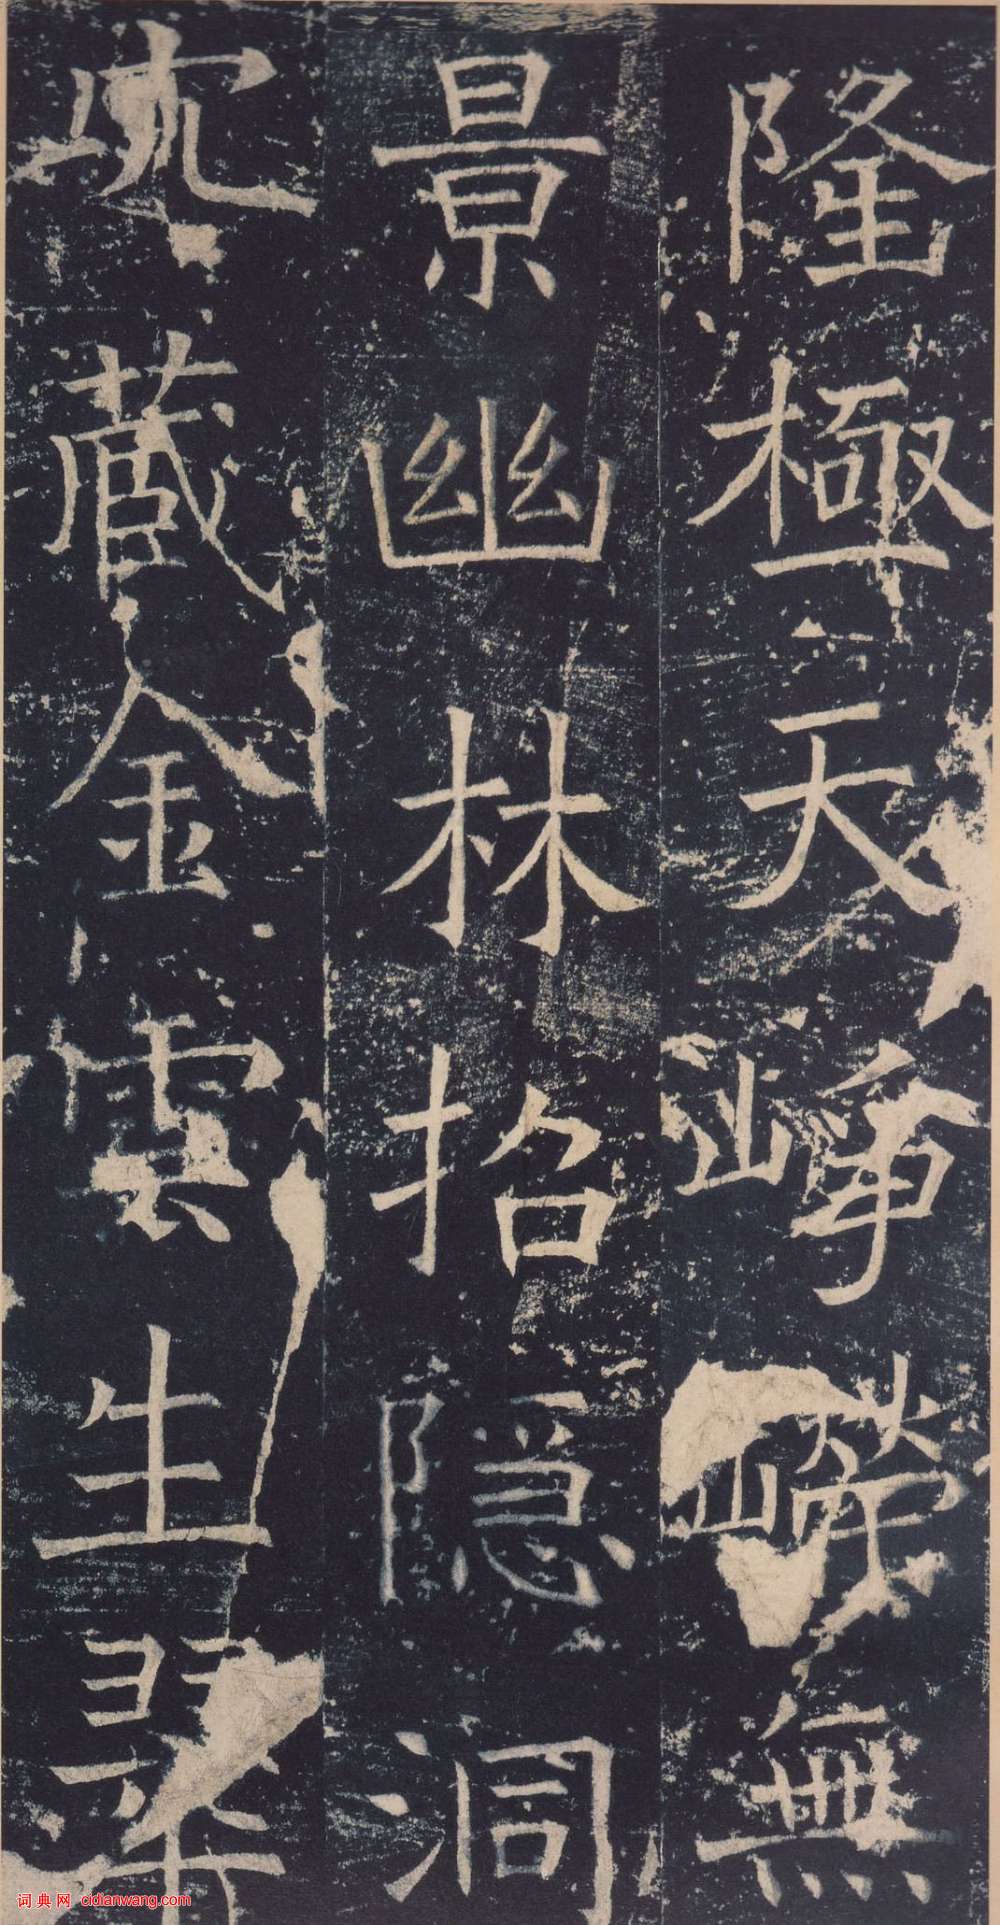 隆極天崢嶸無
景幽林招隐洞
穴藏金雲生翠
词典网 cidianwang.com